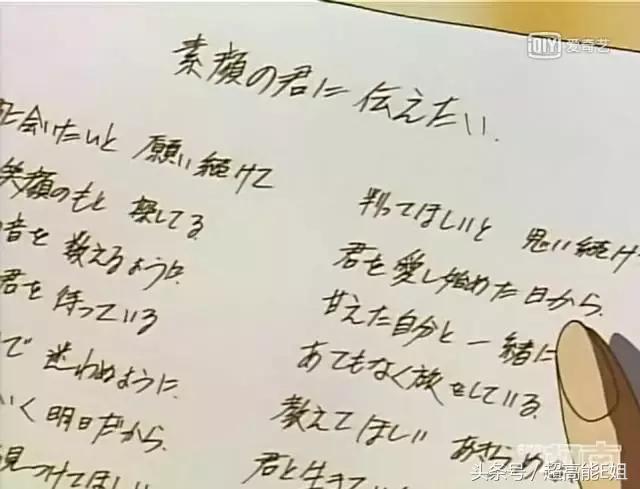 爱奇艺
素顔の君に伝えたい.
に会いたいと 願い続けて
笑顔のもと 探してる
音を 数えるように
君を 待っている
で 迷わぬように
いく明日だから
見つけてほしい
判ってほしいと 思い続け
君を愛し始めた日から
甘えた自分と一緒に
あてもなく旅をしている
教えてほしい あきらめ
君と生きて
头条号／超高能E姐